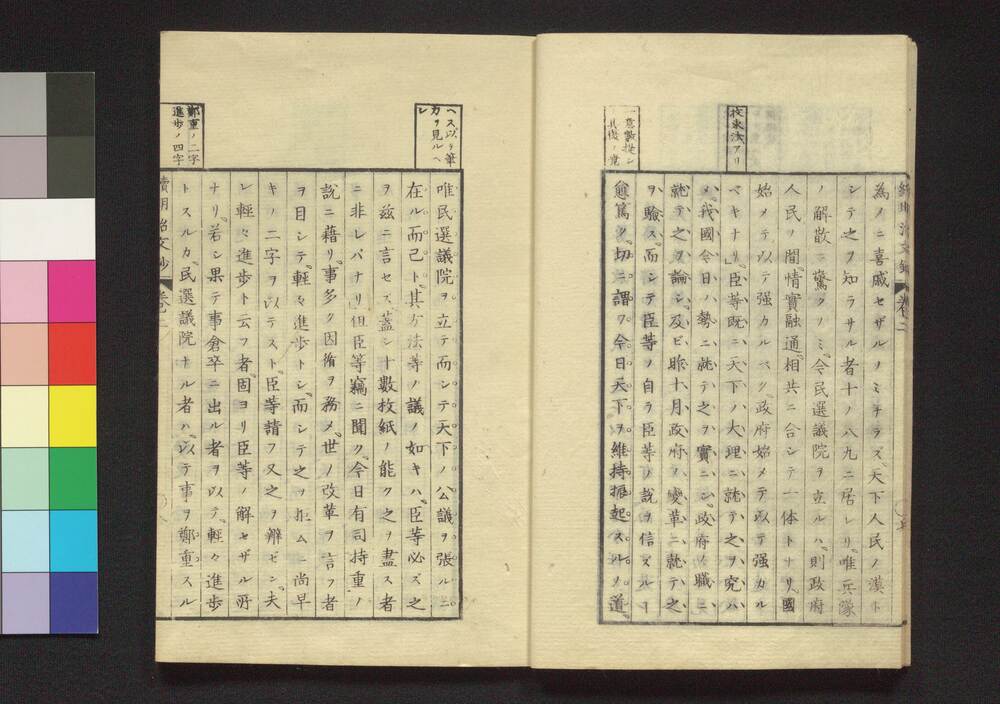 為ノニ喜戚セザルノミナラズ天下人民ノ漠ト
シテ之ヲ知ラサル者十ノ八九ニ居レリ唯兵隊
ノ解散ニ驚クノミ令民選議院ヲ立ルハ則政府
人民ノ間情實融通相共ニ合シテ一体トナリ國
始メテ以テ强カルベク政府始メテ以テ强カル
ベキナリ臣等既ニ天下ノ大理ニ就テ之ヲ究ハ
メ我國今日ノ勢ニ就テ之ヲ實ニシ政府ノ職ニ
就テ之ヲ論シ及ビ昨十月政府ノ變革ニ就テ之
ヲ驗ス而シテ臣等ノ自ラ臣等ノ説ヲ信スル
愈篤ク切ニ謂フ今日天下ヲ維持振起スルノ道
唯民選議院ヲ立テ而シテ天下ノ公議ヲ張ルニ
在ル而己ト其方法等ノ議ノ如キハ臣等必ズ之
ヲ茲ニ言セズ蓋シ十數枚紙ノ能ク之ヲ盡ス者
ニ非レバナリ但臣等竊ニ聞ク今日有司持重ノ
説ニ藉リ事多ク因循ヲ務メ世ノ改革ヲ言フ者
ヲ目シテ輕々進歩トシ而シテ之ヲ拒ムニ尚早
キノ二字ヲ以テスト臣等請フ又之ヲ辨ゼン夫
レ輕々進歩ト云フ者固ヨリ臣等ノ解セザル所
ナリ若シ果テ事倉卒ニ出ル者ヲ以テ輕々進歩
トスルカ民選議院ナル者ハ以テ事ヲ鄭重スル
收束法アリ
一意數提シ
ヘス以テ筆
力ヲ見ルヘ
レ
鄭重ノ二字
進歩ノ四字